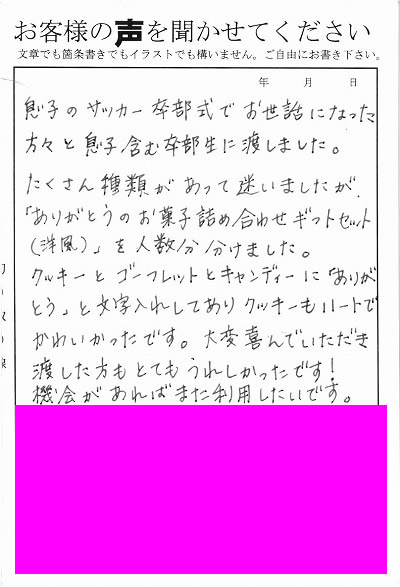 お客様の声を聞かせてください
文章でも箇条書きでもイラストでも構いません。ご自由にお書き下さい。
年 月 日
息子のサッカー卒部式でお世話になった
方々と息子含む卒部生に渡しました。
たくさん種類があって迷いましたが、
「ありがとうのお菓子詰め合わせギフトセット
(洋風)」を人数分分けました。
クッキーとゴーフレットとキャンディーに「ありが
とう」と文字入れしてありクッキーもハートで
かわいかったです。大変喜んでいただき
渡した方もとてもうれしかったです!
機会があればまた利用したいです。
切り取り線